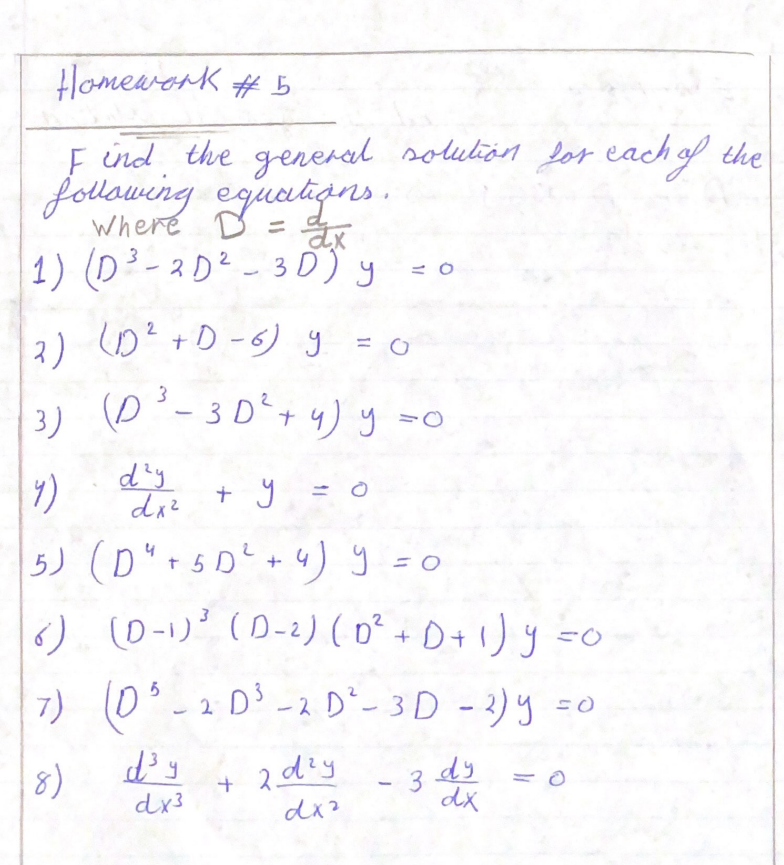 Homework # 5
Find the general solution for each of the
following equations.
Where D = d/dx
1) (D³ - 2D² - 3D) y = 0
2) (D² + D - 6) y = 0
3) (D³ - 3D² + 4) y = 0
4) d²y/dx² + y = 0
5) (D⁴ + 5D² + 4) y = 0
6) (D-1)³ (D-2) (D² + D + 1) y = 0
7) (D⁵ - 2D³ - 2D² - 3D - 2) y = 0
8) d³y/dx³ + 2 d²y/dx² - 3 dy/dx = 0